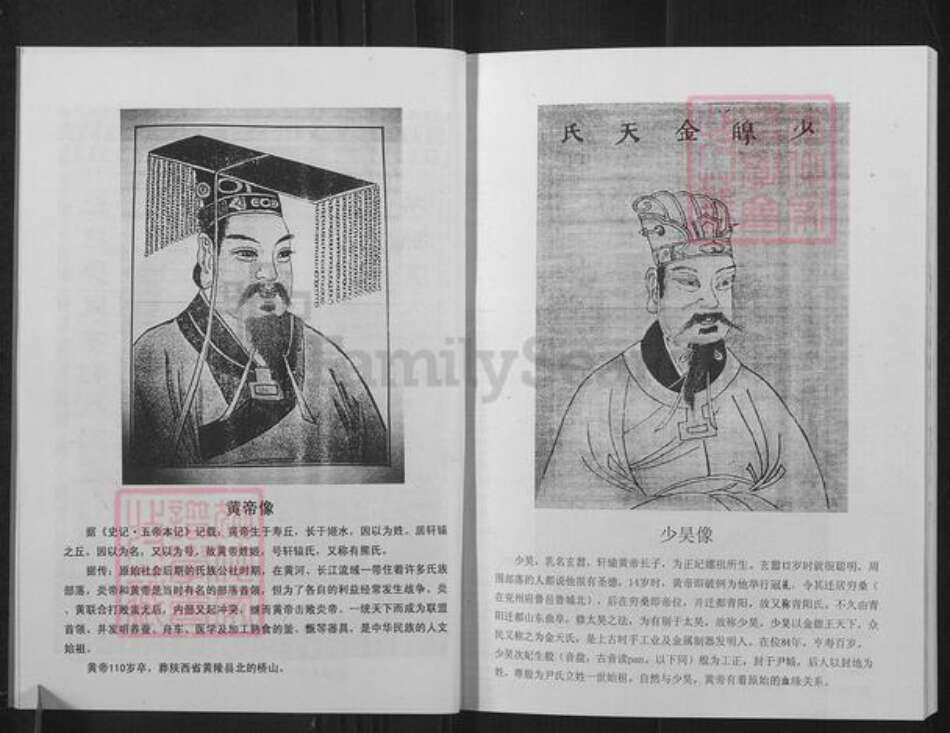 黄帝像
据《史记·五帝本记》记载：黄帝生于寿丘，长于姬水，因以为姓，居轩辕
之丘，因以为名，又以为号，故黄帝姓姬，号轩辕氏，又称有熊氏。
据传：原始社会后期的氏族公社时期，在黄河、长江流域一带住着许多氏族
部落，炎帝和黄帝是当时有名的部落首领，但为了各自的利益经常发生战争。炎
、黄联合打败蚩尤后，内部又起冲突，继而黄帝击败炎帝，一统天下而成为联盟
首领，并发明养蚕、舟车、医学及加工熟食的釜、甑等器具，是中华民族的人文
始祖。
黄帝110岁卒，葬陕西省黄陵县北的桥山。
少皞金天氏
少昊像
少昊，乳名玄嚣，轩辕黄帝长子，为正妃嫘祖所生。玄嚣12岁时就很聪明，周
围部落的人都说他很有圣德，14岁时，黄帝即破例为他举行冠礼，令其迁居穷桑（
在兖州府鲁邑鲁城北），后在穷桑即帝位，并迁都青阳，故又称青阳氏。不久由青
阳迁都山东曲阜，修太昊之法，为有别于太昊，故称少昊。少昊以金德王天下，众
民又称之为金天氏，是上古时手工业及金属制器发明人。在位84年，亨寿百岁。
少昊次妃生般（音盘，古音读pan，以下同）般为工正，封于尹城，后人以封地为
姓，尊般为尹氏立姓一世始祖，自然与少昊，黄帝有着原始的血缘关系。
FamilySea